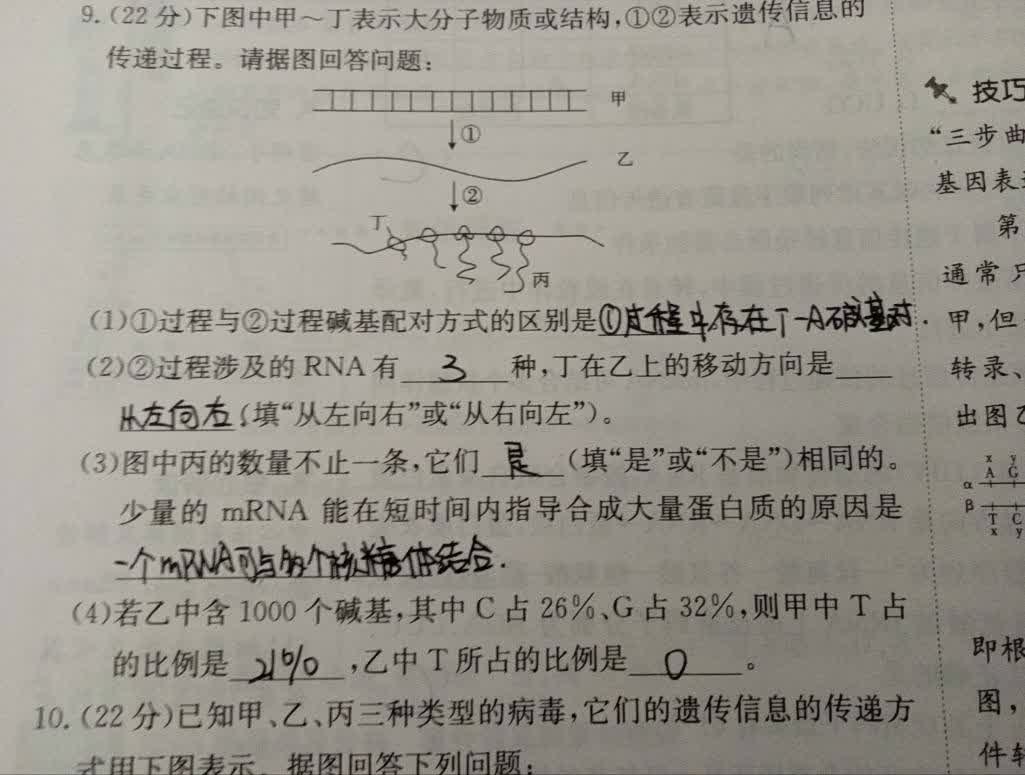 9.(22分)下图中甲～丁表示大分子物质或结构,①②表示遗传信息的
传递过程。请据图回答问题:
甲
①
乙
②
丁
丙
(1)①过程与②过程碱基配对方式的区别是①过程中存在T-A碱基对.
(2)②过程涉及的RNA有 3 种,丁在乙上的移动方向是
从左向右(填“从左向右”或“从右向左”)。
(3)图中丙的数量不止一条,它们 是 (填“是”或“不是”)相同的。
少量的 mRNA 能在短时间内指导合成大量蛋白质的原因是
一个mRNA可与多个核糖体结合.
(4)若乙中含1000个碱基,其中C占26%、G占32%,则甲中T占
的比例是 21% ,乙中T所占的比例是 0 。
10.(22分)已知甲、乙、丙三种类型的病毒,它们的遗传信息的传递方
式用下图表示。据图回答下列问题:
技巧
“三步曲
基因表
第
通常只
甲,但
转录、
出图乙
x y
α A G
β T C
x y
即根
图,
件转